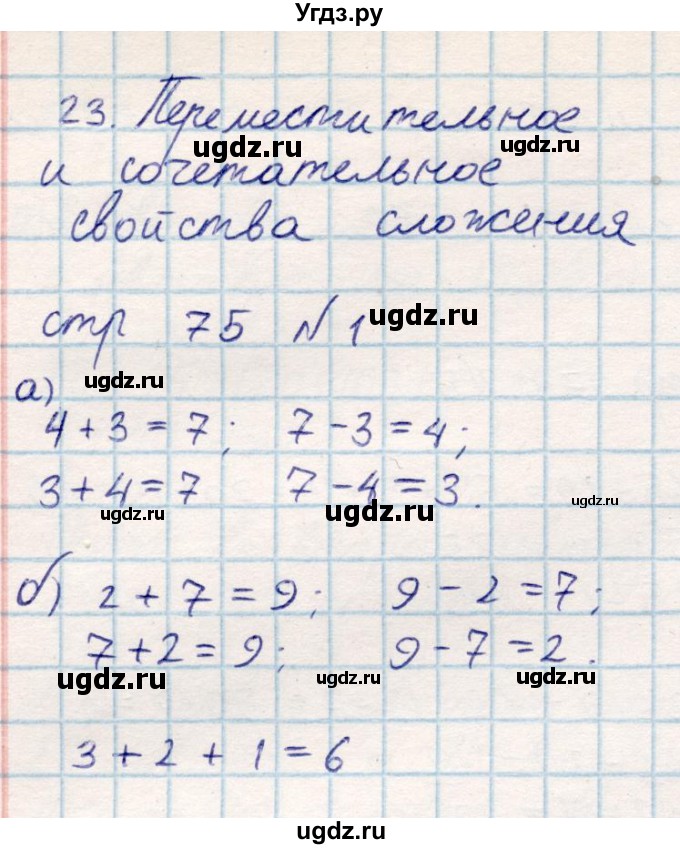 Угдз.ру
23. Переместительное
ugdz.ru ugdz.ru
и сочетательное
свойства сложения
стр 75 № 1 ugdz.ru
а) ugdz.ru
4 + 3 = 7; 7 - 3 = 4;
3 + 4 = 7 7 - 4 = 3.
ugdz.ru ugdz.ru ugdz.ru
б) 2 + 7 = 9; 9 - 2 = 7;
7 + 2 = 9; 9 - 7 = 2.
ugdz.ru ugdz.ru ugdz.ru
3 + 2 + 1 = 6
ugdz.ru